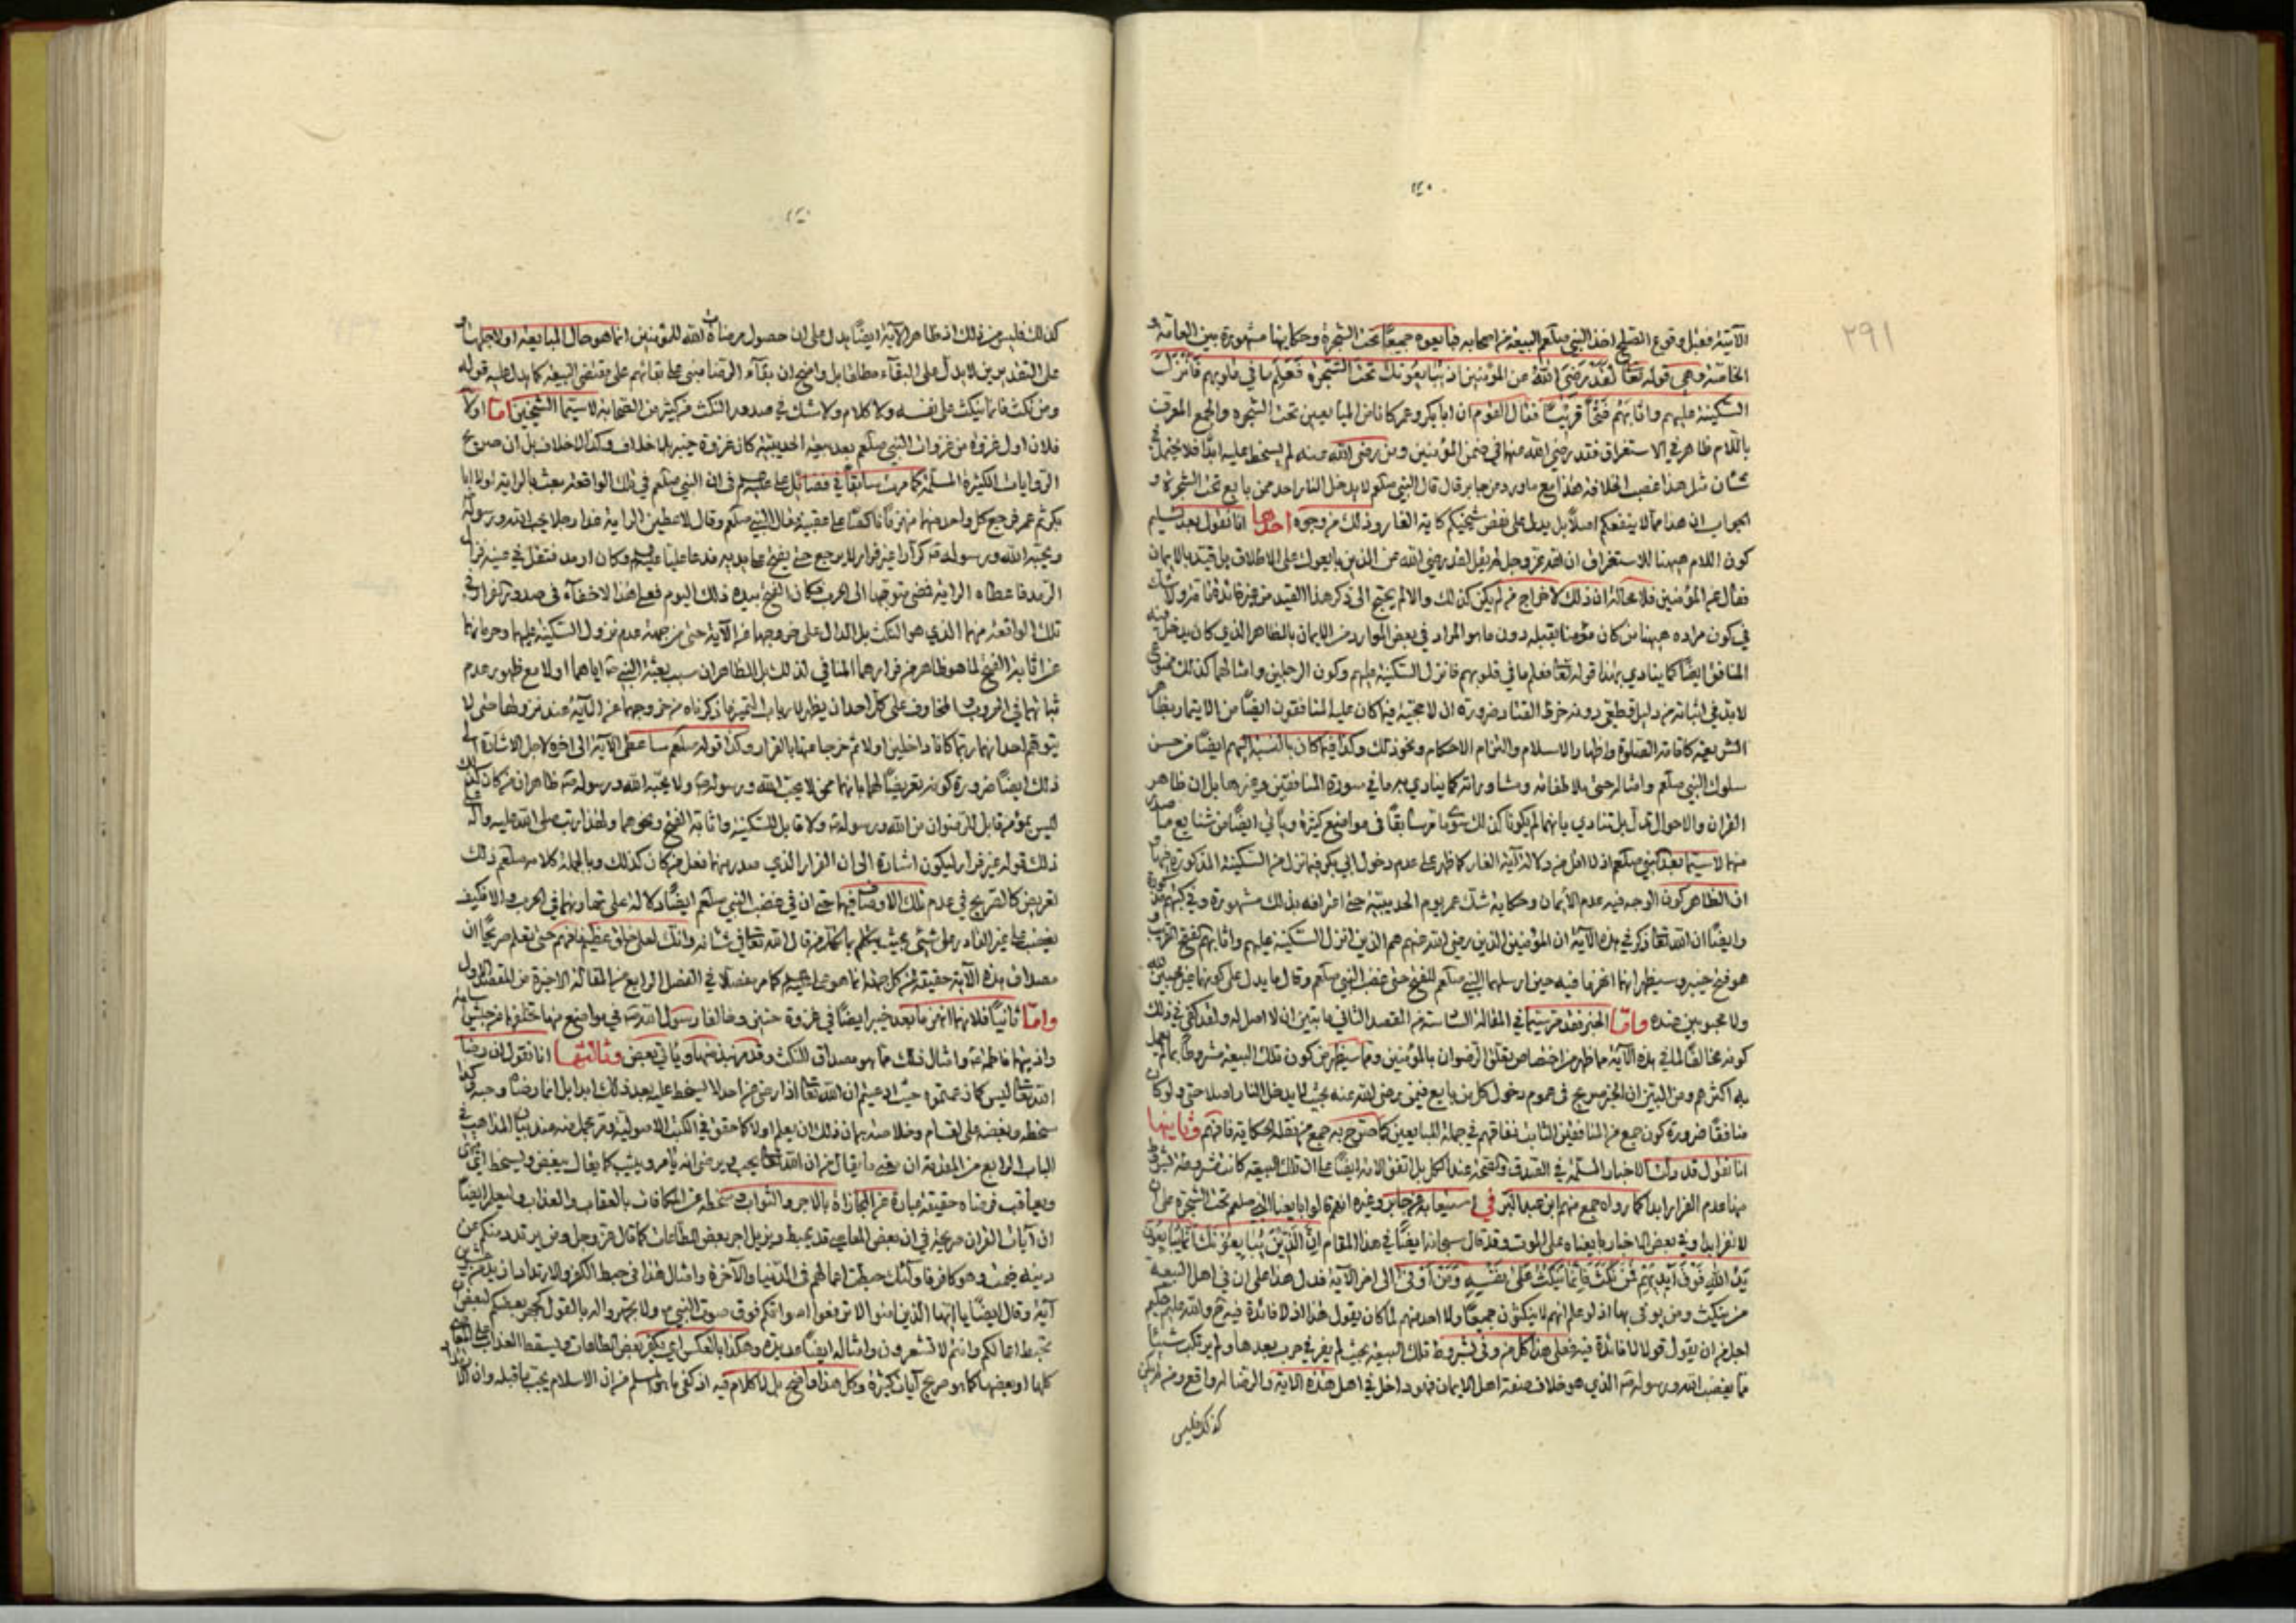 ٢٩١
الآتية فقبل وقوع الصلح اخذ النبي صلعم البيعة من اصحابه فبايعوه جميعًا تحت الشجرة وحكايتها مشهورة بين العامة و
الخاصة وهي قوله تعالى لَقَدْ رَضِيَ اللّٰهُ عن المؤمنين اذ يُبَايِعُونَكَ تحتَ الشَّجَرَةِ فَعَلِمَ ما في قلوبهم فَأَنْزَلَ
السَّكِينَةَ عليهم واثابَهُمْ فَتْحًا قريبًا فقال القوم ان ابابكر وعمر كانا من المبايعين تحت الشجره والجمع المعرف
باللام ظاهر في الاستغراق فقد رضي الله عنهما في ضمن المؤمنين ومن رضي الله عنه لم يسخط عليه ابدًا فلا يحتمل في
شان مثل هذا غصب الخلافة هذا مع ما ورد من جابر قال قال النبي صلعم لا يدخل النار احد ممن بايع تحت الشجرة و
الجواب ان هذا مما لا ينفعكم اصلًا بل يدل على نقض شيخيكم كاية الغار وذلك من وجوه احدها انا نقول بعد تسليم
كون اللام ههنا للاستغراق ان الله عز وجل لم يقل لقد رضي الله عن الذين بايعوك على الاطلاق بل قيد بالايمان
فقال عن المؤمنين فلا محالة ان ذلك لاخراج من لم يكن كذلك والا لم يحتج الى ذكر هذا القيد من غير فائدة ولا شك
في كون مراده ههنا من كان مؤمنا بقلبه دون ما هو المراد في بعض الموارد من الايمان بالظاهر الذي كان يدخل فيه
المنافق ايضًا كما ينادي بهذا قوله تعالى فعلم ما في قلوبهم فانزل السكينة عليهم وكون الرجلين وامثالهما كذلك
لابد في اثباته من دليل قطعي دونه خرط القتاد ضرورة ان لا حجية فيما كان عليه المنافقون ايضًا من الايتمار بظاهر
الشريعة كاقامة الصلوة واظهار الاسلام والتزام الاحكام ونحو ذلك وكذا فيما كان بالنسبة اليهم ايضًا من حسن
سلوك النبي صلعم وامثاله حتى ملاطفاته ومشاوراته كما ينادي به ما في سورة المنافقين وغيرها بل ان ظاهر
القران والاحوال تدل بل تنادي بانهما لم يكونا كذلك سابقًا في مواضع كثيرة وياتي ايضًا من شنايع ما صدر
منهما لاسيما بعد النبي صلعم اذ لا اقل من دلالة آية الغار كما ظهر على عدم دخول ابي بكر فيما نزل من السكينة المذكورة
ان الظاهر كون الوجه فيه عدم الايمان وحكاية شك عمر يوم الحديبية حتى اعترافه بذلك مشهورة وفي كتبهم مذكورة
وايضًا ان الله تعالى ذكر في هذه الآية ان المؤمنين الذين رضي الله عنهم هم الذين انزل السكينة عليهم واثابهم بفتح القريب و
هو فتح خيبر وسيظهر انهما انهزما فيه حين ارسلهما النبي صلعم للفتح حتى غضب النبي صلعم وقال ما يدل على كونهما غير محبين لله
ولا محبوبين عنده واما الخبر فقد مر في المقالة السادسة من المقصد الثاني ما يتبين ان لا اصل له ولقد كفى في ذلك
كونه مخالفًا لما في هذه الآية مما ظهر من اختصاص تعلق الرضوان بالمؤمنين ومما سيظهر من كون تلك البيعة مشروطة بما لم يعمل
به اكثرهم ومن البين ان الخبر صريح في عموم دخول كل من بايع فيمن رضي الله عنه بحيث لا يدخل النار اصلا حتى ولو كان
منافقًا ضرورة كون جمع من المنافقين الثابت نفاقهم في جملة المبايعين كما صرح به جمع من نقلة الحكاية فافهم وثانيها
انا نقول قد دلت الاخبار المسلمة الصدق والصحة عند الكل بل اتفق الامة ايضًا على ان تلك البيعة كانت مشروطة بشروط
منها عدم الفرار ابدا كما رواه جمع منهم ابن عبد البر في استيعابه عن جابر وغيره انهم قالوا بايعنا النبي صلعم تحت الشجرة على ان
لا نفر ابدًا وفي بعض الاخبار بايعناه على الموت وقد قال سبحانه ايضًا في هذا المقام اِنَّ الَّذِيْنَ يُبَايِعُوْنَكَ اِنَّمَا يُبَايِعُوْنَ
يَدُ اللّٰهِ فَوْقَ اَيْدِيهِمْ فَمَنْ نَكَثَ فَاِنَّمَا يَنْكُثُ عَلىٰ نَفْسِهِ وَمَنْ اَوْفىٰ الى اخر الآية فدل هذا على ان في اهل البيعة
من ينكث ومن يوفي بها اذ لو علم انهم لا ينكثون جميعًا ولا احد منهم لما كان يقول هذا اذ لا فائدة فيه والله عليم حكيم
اجل من ان يقول قولا لا فائدة فيه فعلى هذا كل من وفى بشروط تلك البيعة بحيث لم يفر في حرب بعدها ولم يرتكب شيئًا
مما يغضب الله ورسوله الذي هو خلاف صفة اهل الايمان فهو داخل في اهل هذه الاية والرضا له واقع ومن لم يكن
كذلك فليس
كذلك فليس من ذلك اذ ظاهر الآية ايضًا يدل على ان حصول مرضاة الله للمؤمنين انما هو حال المبايعة او لاجلها و
على التقديرين لا يدل على البقاء مطلقًا بل واضح ان بقاء الرضا مبني على بقائهم على مقتضى البيعة كما يدل عليه قوله
ومن نكث فانما ينكث على نفسه ولا كلام ولا شك في صدور النكث من كثير من الصحابة لاسيما الشيخين اما اولًا
فلان اول غزوة من غزوات النبي صلعم بعد بيعة الحديبية كان غزوة خيبر بلا خلاف وكذا لا خلاف بل ان صريح
الروايات الكثيرة المسلمة كما مرت سابقًا في فضائل علي عليه السلام في ان النبي صلعم في تلك الواقعة بعث بالراية اولا ابا
بكر ثم عمر فرجع كل واحد منهما منهزمًا ناكصًا على عقبيه فقال النبي صلعم وقال لاعطين الراية غدا رجلا يحب الله ورسوله
ويحبه الله ورسوله كرّارًا غير فرار لا يرجع حتى يفتح على يديه فدعا عليًا عليه السلام وكان ارمد فتفل في عينيه فزال
الرمد فاعطاه الراية فمضى متوجها الى الحرب فكان الفتح بيده ذلك اليوم فعلى هذا لا خفاء في صدور الفرار في
تلك الواقعة منهما الذي هو النكث بل الدال على خروجهما من الآية حتى من جهة عدم نزول السكينة عليهما وحرمانهما
عن اثابة الفتح لما هو ظاهر من فرارهما المنافي لذلك بل الظاهر ان سبب بعثة النبي اياهما اولا مع ظهور عدم
ثباتهما في الحروب المخاوف على كل احد ان يظهر لارباب التمييز ما ذكرناه من خروجهما عن الآية عند نزولها حتى لا
يتوهم احد انهما ربما كانا داخلين اولا ثم خرجا منها بالفرار وكذا قوله صلعم ساعطي الراية الى اخره لاجل الاشارة الى
ذلك ايضًا ضرورة كونه تعريضًا لهما بانهما ممن لا يحب الله ورسوله ولا يحبه الله ورسوله ظاهر ان من كان كذلك
ليس بمؤمن قابل للرضوان من الله ورسوله ولا قابل للسكينة واثابة الفتح ونحوهما ولهذا رتب صلى الله عليه وآله
ذلك قوله غير فرار ليكون اشارة الى ان الفرار الذي صدر منهما فعل من كان كذلك وبالجملة كلامه صلعم ذلك
تعريض كالصريح في عدم تلك الاوصاف فيهما حتى ان في غضب النبي صلعم ايضًا دلالة على تهاونهما في الحرب والا فكيف
يغضب على غير القادر على شيء بحيث يتكلم بما تكلم من قال الله تعالى في شانه وانك لعلى خلق عظيم فافهم حتى تعلم صريحًا ان
مصداق هذه الآية حقيقة من كل جهة انما هو علي عليه السلام كما مر مفصلًا في الفصل الرابع من المقالة الاخيرة من المقصد الاول
واما ثانيًا فلانهما انهزما بعد خيبر ايضًا في غزوة حنين وخالفا رسول الله في مواضع منها تخلفهما من جيش اسامة
واذيتهما فاطمة وامثال ذلك مما هو مصداق النكث وقد مر نبذ منها وياتي بعض وثالثها انا نقول ان رضا
الله تعالى ليس كما زعمتموه حيث ادعيتم ان الله تعالى اذا رضي عن احد لا يسخط عليه بعد ذلك ابدا بل انما رضاه وحبه كذا
سخطه وبغضه على اقسام وخلاصة بيان ذلك ان يعلم اولا كما حقق في الكتب الاصولية ومر مجمل منه عند بيان المذاهب في
الباب الرابع من المقدمة ان معنى ما يقال من ان الله تعالى يحب ويرضى انه يامر ويثيب كما يقال يبغض ويسخط اي ينهى
ويعاقب فرضاه حقيقة عبارة عن المجازاة بالاجر والثواب وسخطه عن المكافات بالعقاب والعذاب وليعلم ايضًا
ان آيات القران صريحة في ان بعض المعاصي قد يحبط ويزيل اجر بعض الطاعات كما قال عز وجل ومن يرتدد منكم عن
دينه فيمت وهو كافر فاولئك حبطت اعمالهم في الدنيا والآخرة وامثال هذا في حبط الكفر والارتداد ازيد من عشرين
آية وقال ايضًا يا ايها الذين امنوا لا ترفعوا اصواتكم فوق صوت النبي ولا تجهروا له بالقول كجهر بعضكم لبعض ان
تحبط اعمالكم وانتم لا تشعرون وامثاله ايضًا عديدة وهكذا بالعكس اي يكفر بعض الطاعات ويسقط العذاب على المعاصي
كلها او بعضها كما هو صريح آيات كثيرة وكل هذا واضح بل لا كلام فيه اذ كفى ما هو مسلم من ان الاسلام يجب ما قبله وان